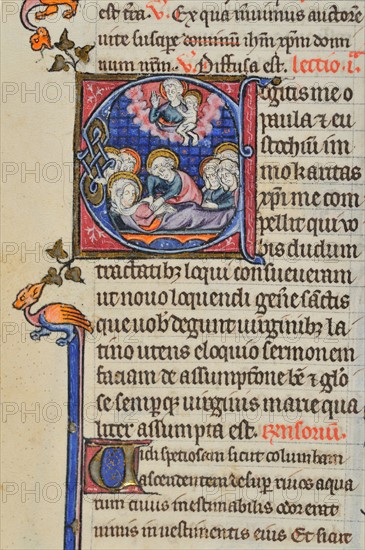 est tra. V. Ex qua vivimus auctorē
vite suscipe dominū ihm xpm domi
num nrm. V. Diffusa est. lectio .i.
Cogitis me o
paula ⁊ eu
stochiū im
mo karitas
xpi me com
pellit qui vo
bis dudum
tractatibꝫ loqui consueueram
ut nouo loquendi geñe sanctis
que uob̄ degunt uirginibꝫ la
tino utens eloquio sermonem
faciam de assumptōne bē ⁊ glō
se semperqꝫ uirginis marie qua
liter assumpta est. Responsoriū.
Uidi speciosam sicut columbam
ascendentem desuper riuos aqua
rum cuius inestimabilis odor erat
nimis in uestimentis eius Et sicut
PHOTO12